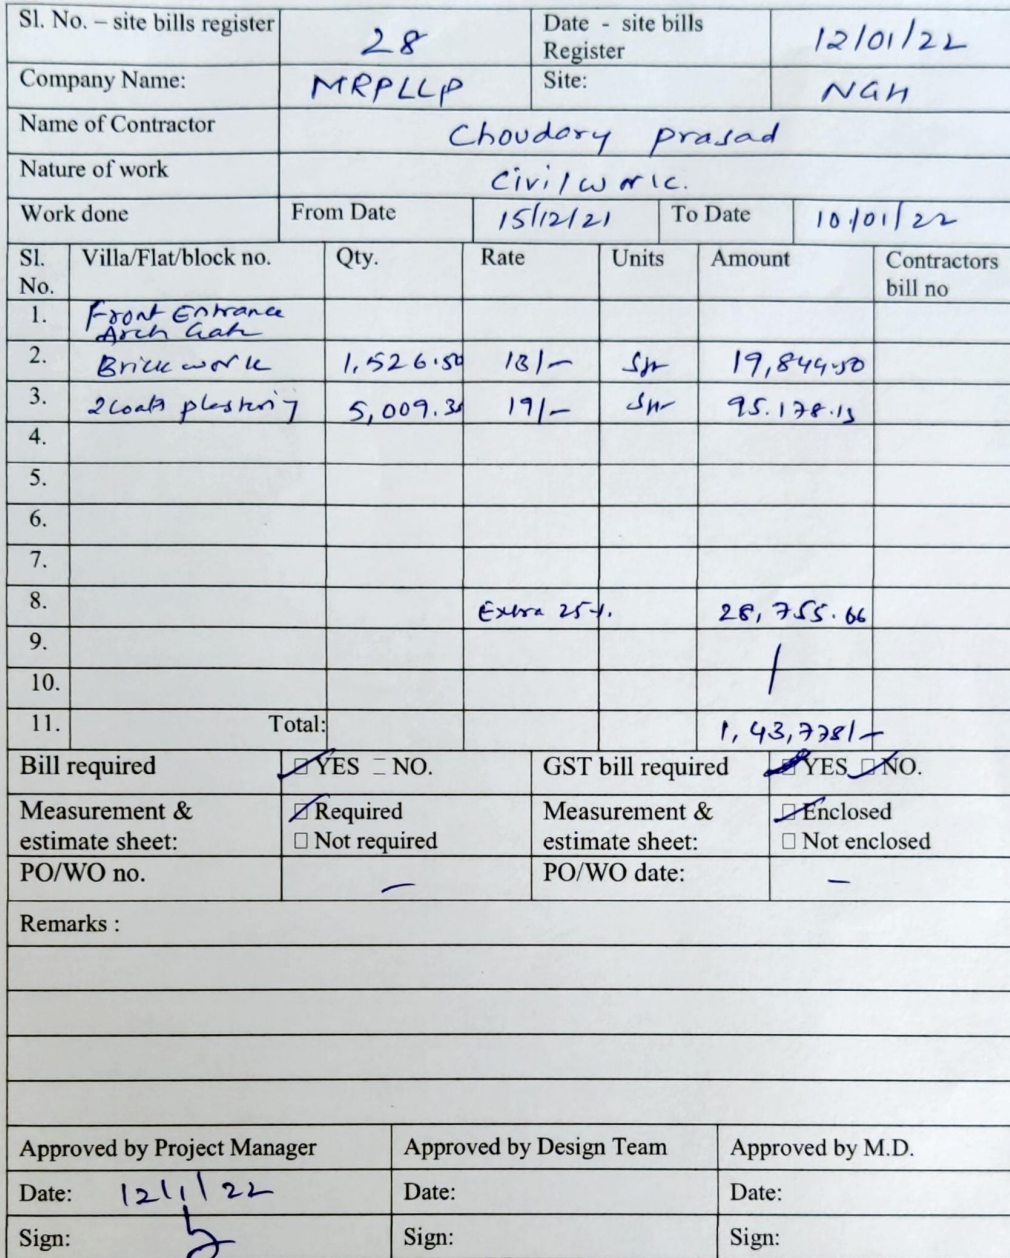 Sl. No. – site bills register 28 Date - site bills Register 12/01/22
Company Name: MRPLLP Site: NGH
Name of Contractor Choudary prasad
Nature of work Civil work.
Work done From Date 15/12/21 To Date 10/01/22
Sl. No. Villa/Flat/block no. Qty. Rate Units Amount Contractors bill no
1. Front Entrance
Arch Gate
2. Brick work 1,526.50 13/- Sft 19,844.50
3. 2 Coats plastering 5,009.3 19/- Sft 95.178.15
4.
5.
6.
7.
8. Extra 25%. 28,755.66
9.
10.
11. Total: 1,43,778/-
Bill required YES NO. GST bill required YES NO.
Measurement & estimate sheet: Required Measurement & estimate sheet: Enclosed
Not required Not enclosed
PO/WO no. – PO/WO date: –
Remarks :
Approved by Project Manager Approved by Design Team Approved by M.D.
Date: 12/1/22 Date: Date:
Sign: Sign: Sign: